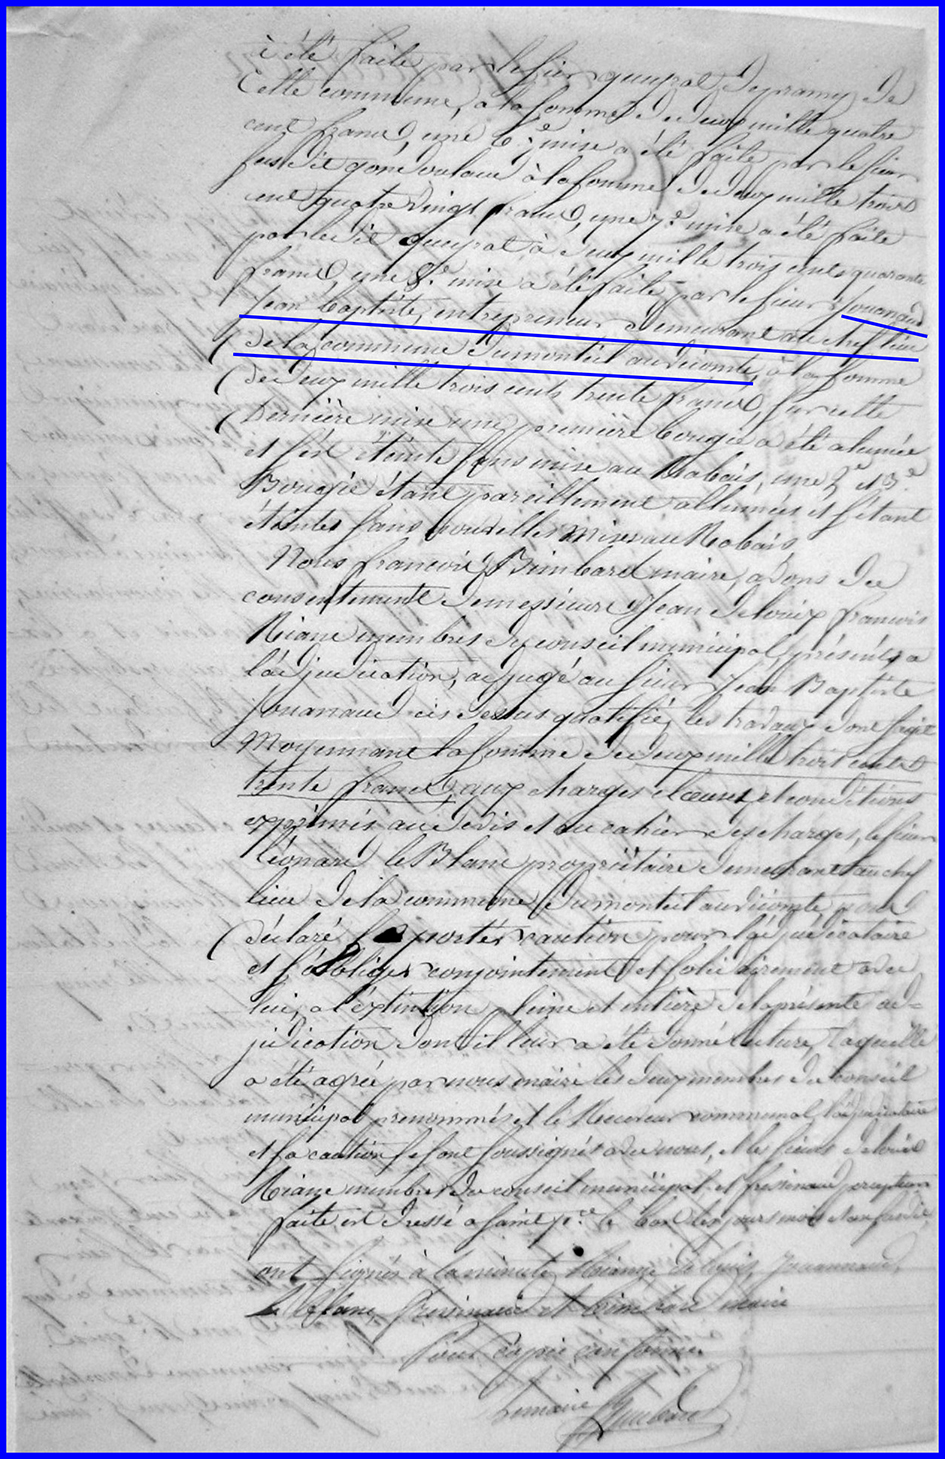 à été faite par le sieur queyrat, depramy de
Cette commune, a la somme de deux mille quatre
cent francs, une 6e mise a été faite par le sieur
susdit à la somme de deux mille trois
cent quatre vingt francs, une 7e mise a été faite
par ledit queyrat à deux mille trois cents quarante
francs, une 8e mise a été faite par le sieur Jouanaud
Jean baptiste, entrepreneur demeurant au chef lieu
de la commune dumonteil auvicomte, à la somme
de deux mille trois cents trente francs, sur cette
dernière mise une première bougie a été alumée
et s'est éteinte sans mise au Rabais, une 2e et 3e
Bougie étant pareillement allumées et s'étant
éteintes sans nouvelles Mises au Rabais
Nous francois Brimbard maire, avons du
consentement demessieurs Jean delouix francois
Riane membres du conseil municipal, présents a
l'adjudication, adjugé au sieur Jean Baptiste
Jouanaud cis dessus qualifié, les travaux dont sagit
Moyennant la somme de deux mille trois cents
trente francs, aux charges clauses et conditions
exprimés au devis et au cahier des charges, le sieur
Léonard le Blanc propriétaire demeurant au chef
lieu de la commune dumonteil auvicomte, a
déclaré se porter caution pour l'adjudicataire
et s'obliger conjointement et solidairement avec
lui, a l'extinction pleine et entière de la présente ad-
judication dont il leur a été donné lecture, laquelle
a été agréé par nous maire les deux membres du conseil
municipal prénommés et le Receveur communal, l'adjudicataire
et sa caution se sont soussignés avec nous, et les sieurs delouix
Riane membres du conseil municipal et fressinaud percepteur
faite et dressé a saint pre le bar les jours mois et an susdit
ont signés à la minute, Riane, delouix, Jouannaud,
Le Blanc, fressinaud et Brimbard maire
Pour copie conforme
Lemaire Brimbard